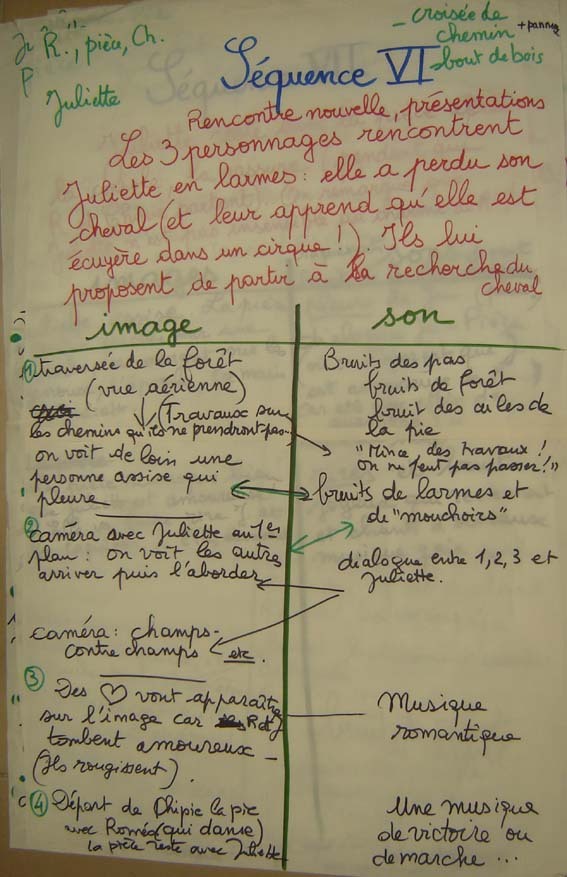 R., pièce, Ch.
P
Juliette
- croisée de
chemin + panneau
- bout de bois
Séquence VI
Rencontre nouvelle, présentations
Les 3 personnages rencontrent
Juliette en larmes : elle a perdu son
cheval (et leur apprend qu'elle est
écuyère dans un cirque !). Ils lui
proposent de partir à la recherche du
cheval
image
son
① traversée de la forêt
(vue aérienne)
(Travaux sur
les chemins qu'ils ne prendront pas
on voit de loin une
personne assise qui
pleure
Bruits des pas
bruits de forêt
bruit des ailes de
la pie
"Mince, des travaux !
On ne peut pas passer !"
bruits de larmes et
de "mouchoirs"
② caméra avec Juliette au 1er
plan : on voit les autres
arriver puis l'aborder
dialogue entre 1, 2, 3 et
Juliette.
caméra : champs-
contre champs etc.
③ Des ♡ vont apparaître
sur l'image car R et J
tombent amoureux -
(Ils rougissent).
Musique
romantique
④ Départ de Chipie la pie
avec Roméo (qui danse)
la pièce reste avec Juliette
Une musique
de victoire ou
de marche ...